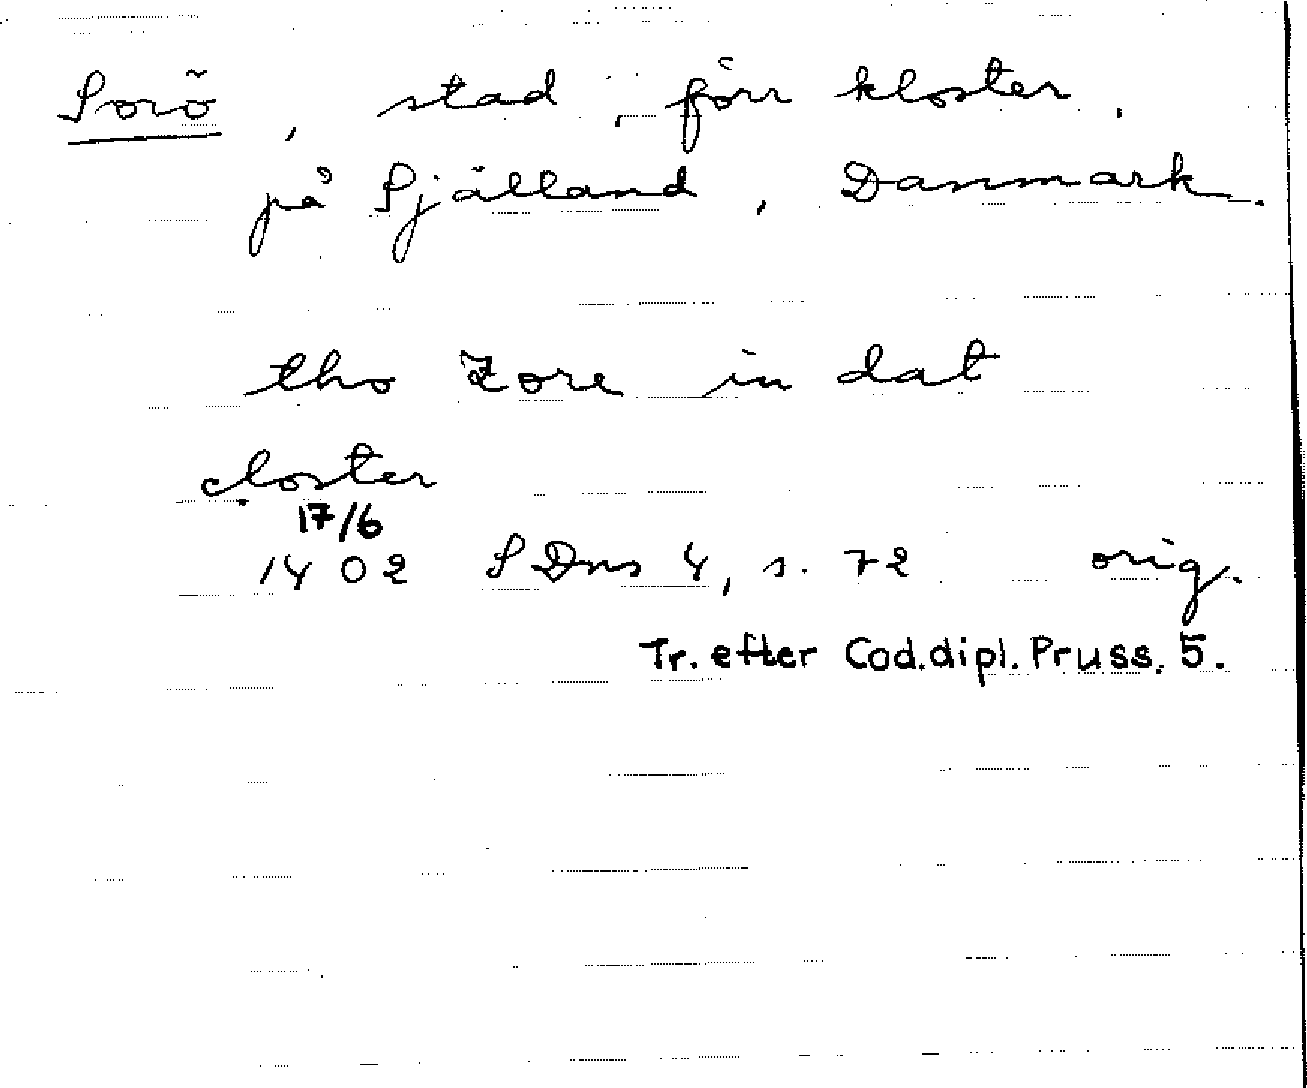 Sorö, stad, förr kloster,
på Själland, Danmark.
tho Zore in dat
closter
17/6
1402 SDns 4, s. 72 orig.
Tr. efter Cod.dipl. Pruss. 5.